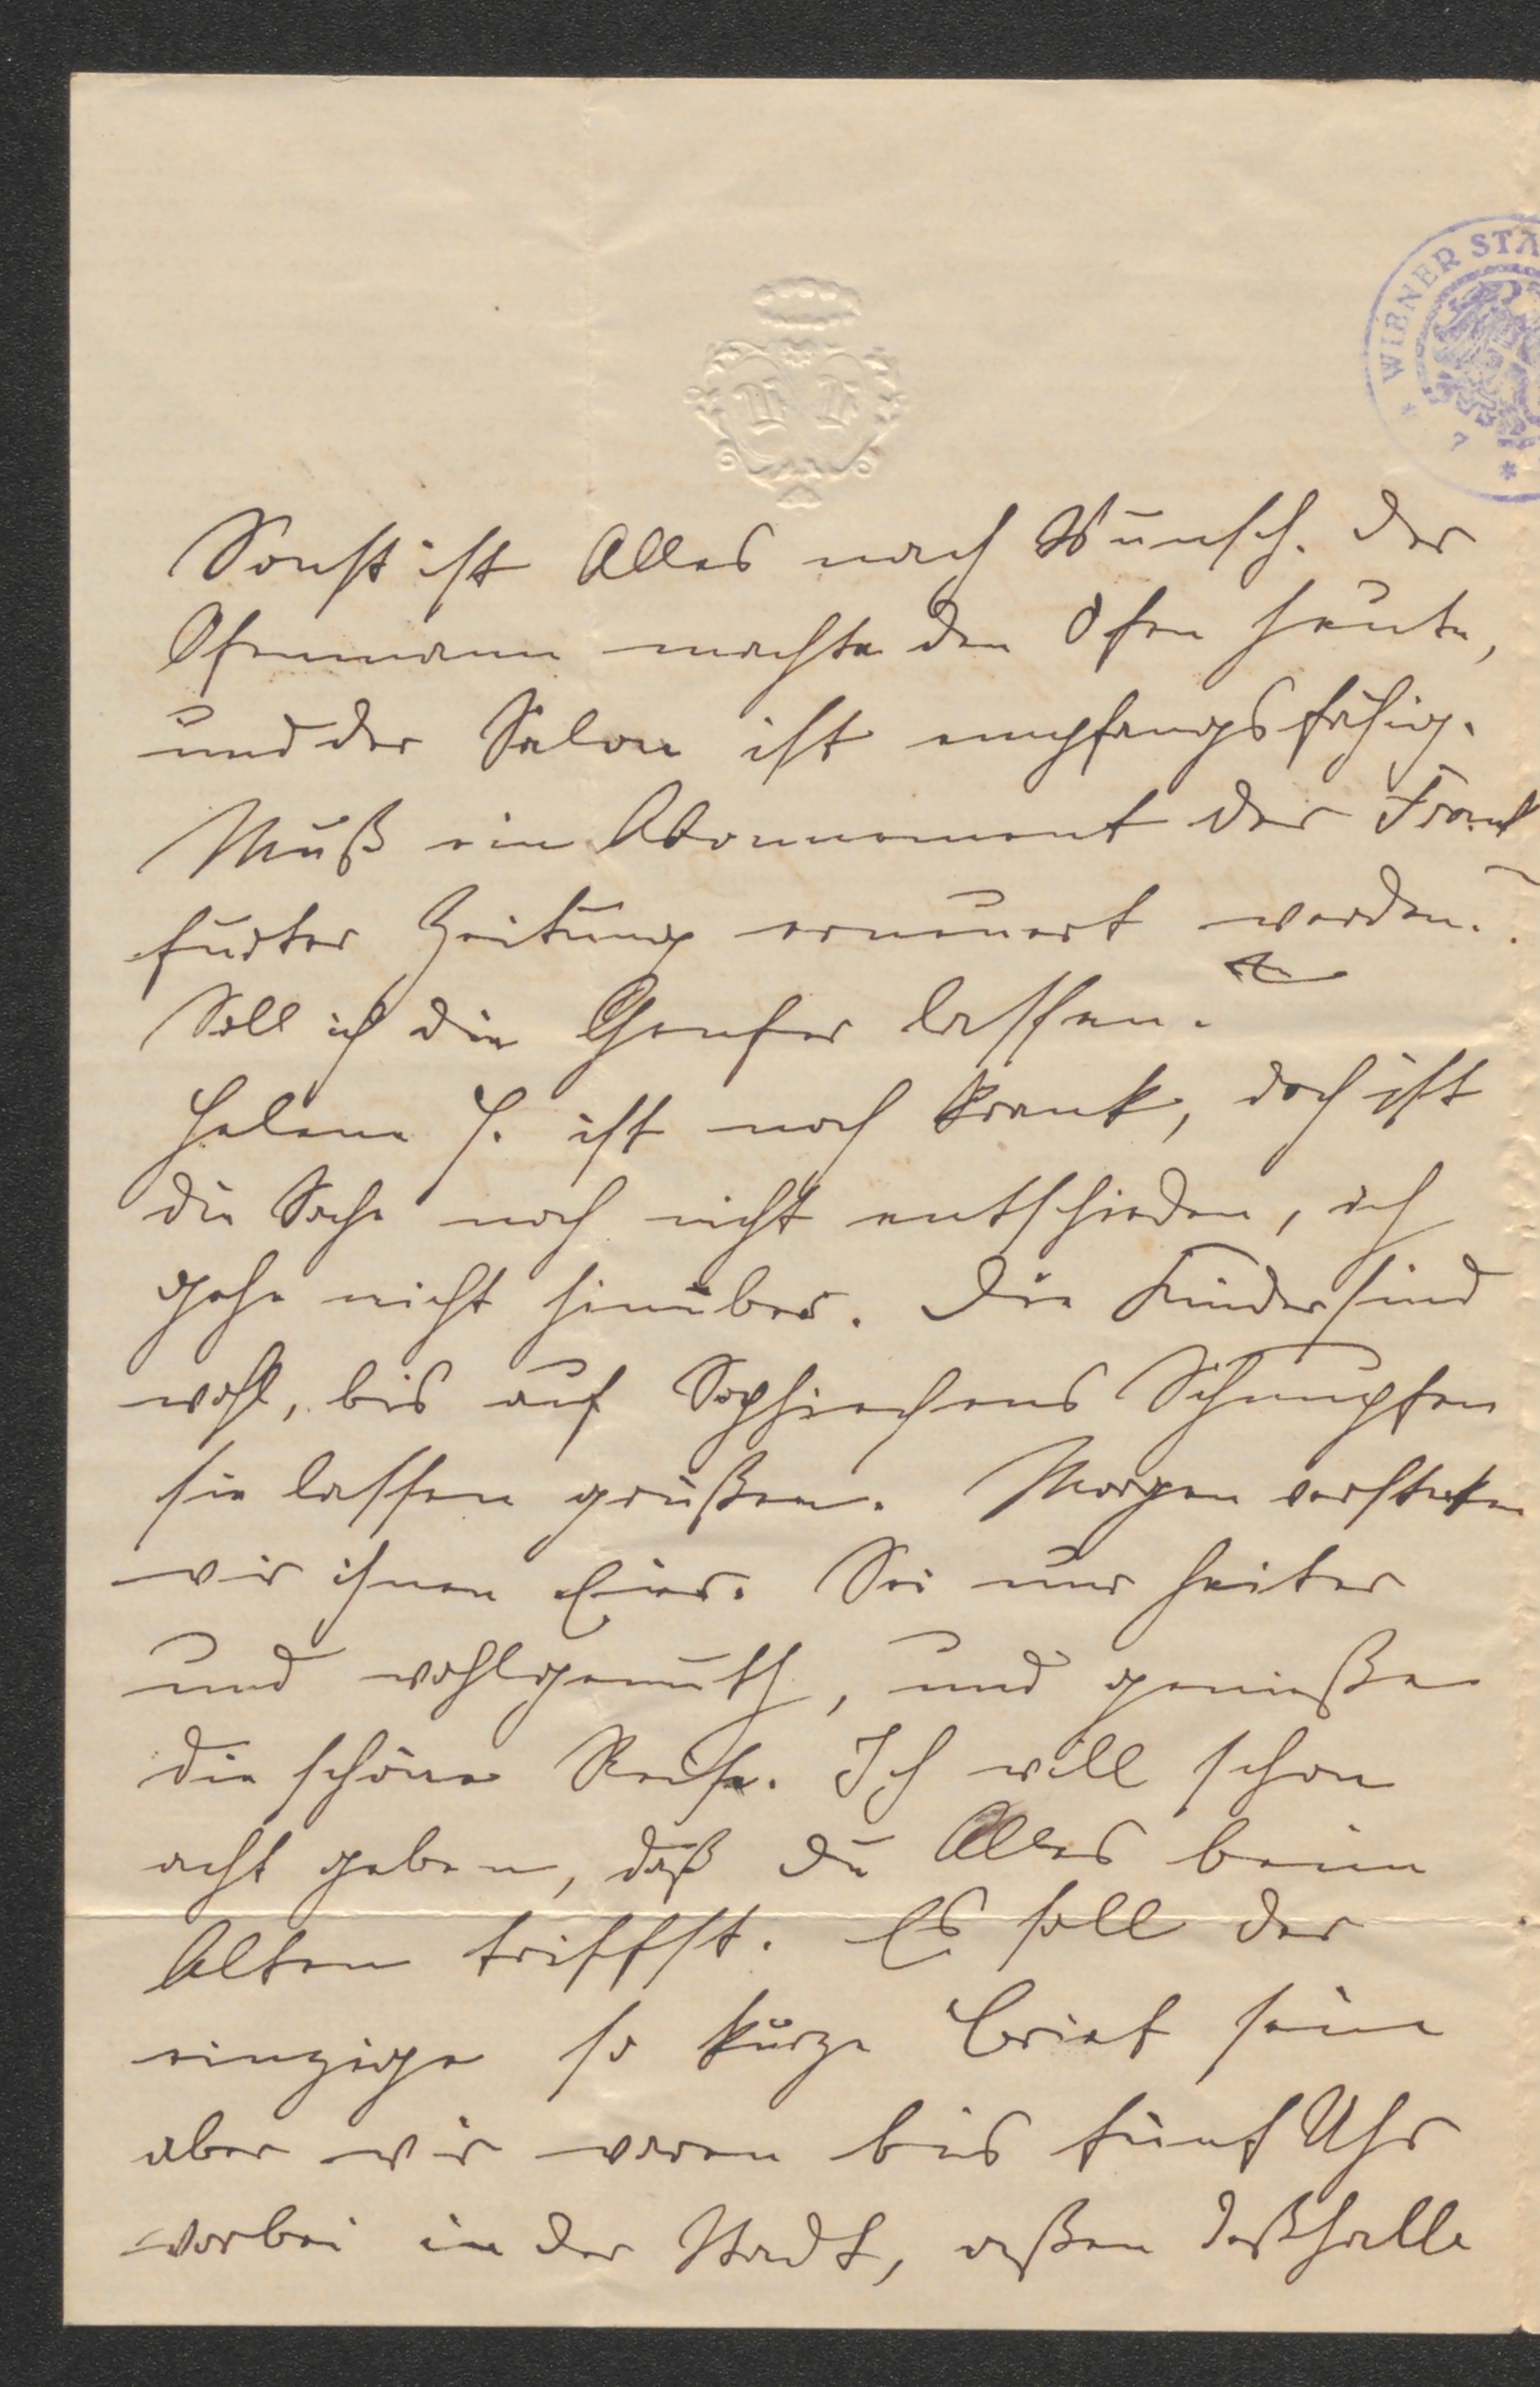 WIENER STA
Sonst ist Alles nach Wunsch. Der
Ofenmann machte den Ofen heute,
und der Salon ist empfangsfähig.
Muß ein Abonnement der Frank
furter Zeitung erneuert werden?
Soll ich die Genfer lassen.
Helene H. ist noch krank, doch ist
die Sache noch nicht entschieden, ich
gehe nicht hinüber. Die Kinder sind
wohl, bis auf Sophiechens Schnupfen
sie lassen grüßen. Morgen verstecken
wir ihnen Eier. Sei nur heiter
und wohlgemuth, und genieße
die schöne Reise. Ich will schon
acht geben, daß du Alles beim
Alten triffst. Es soll der
einzige so kurze Brief sein
aber wir waren bis fünf Uhr
vorbei in der Stadt, aßen deßhalb